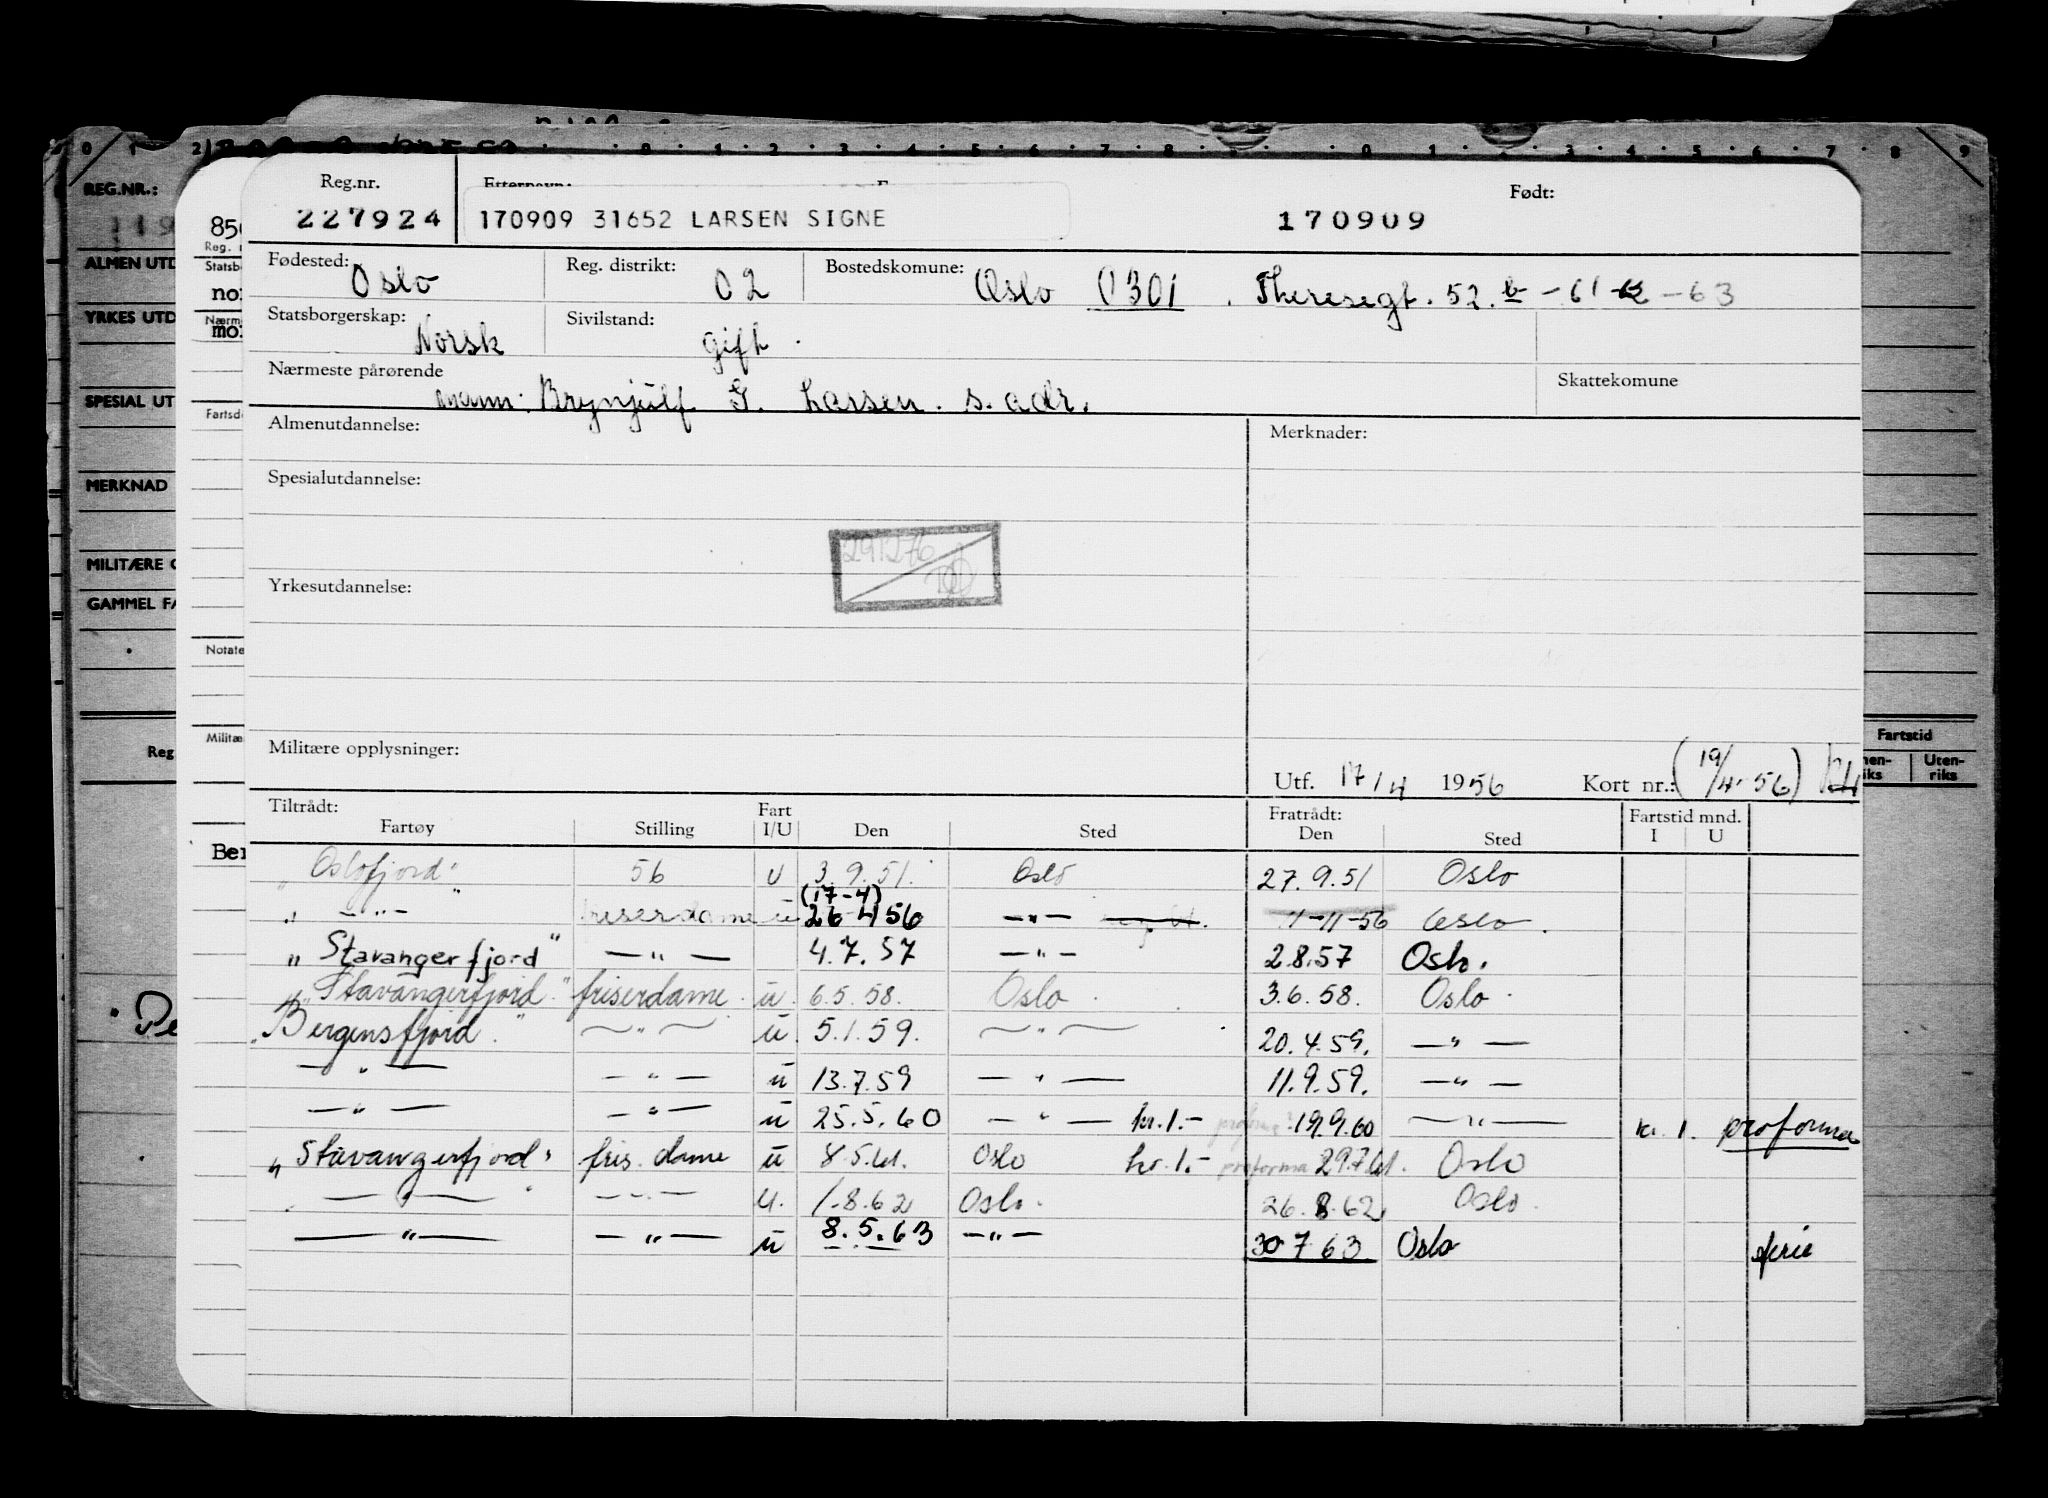 REG.NR.:
ALMEN UTD
YRKES UTD
SPESIAL UT
MERKNAD
MILITÆRE
GAMMEL FA
Reg
Fartstid
Uten-
riks
850
Reg.
Statsb
Nærm
Fartsd
Notate
Militæ
Ber
Reg.nr. Født:
227924 170909 31652 LARSEN SIGNE 170909
Fødested: Oslo Reg. distrikt: 02 Bostedskomune: Oslo 0301 . Theresegt. 52 b - 61 - 62 - 63
Statsborgerskap: Norsk Sivilstand: gift .
Nærmeste pårørende Skattekomune
mann: Brynjulf G. Larsen. s. adr.
Almenutdannelse: Merknader:
Spesialutdannelse:
291276
Yrkesutdannelse:
Militære opplysninger:
Utf. 17/4 1956 Kort nr.: (19/4-56)
Tiltrådt: Fart Fratrådt: Fartstid mnd.
Fartøy Stilling I/U Den Sted Den Sted I U
"Oslofjord" 56 U 3.9.51. Oslo 27.9.51 Oslo
(17-4)
" —"— " friserdame u 26-4 56 —"— 11-11-56 Oslo.
"Stavangerfjord" —"— 4.7.57 —"— 2.8.57 Oslo.
"Stavangerfjord" friserdame. u. 6.5.58. Oslo. 3.6.58. Oslo.
"Bergensfjord" —"— u. 5.1.59. —"— 20.4.59. —"—
—"— —"— u 13.7.59 —"— 11.9.59. —"—
—"— —"— u 25.5.60 —"— kr.1.- proforma 19.9.60 —"— kr. 1. proforma
"Stavangerfjord" fris. dame u 8.5.61. Oslo kr.1.- proforma 29.7.61. Oslo
—"— —"— u. 1.8.62 Oslo. 26.8.62 Oslo.
—"— —"— u 8.5.63 —"— 30 7 63 Oslo ferie